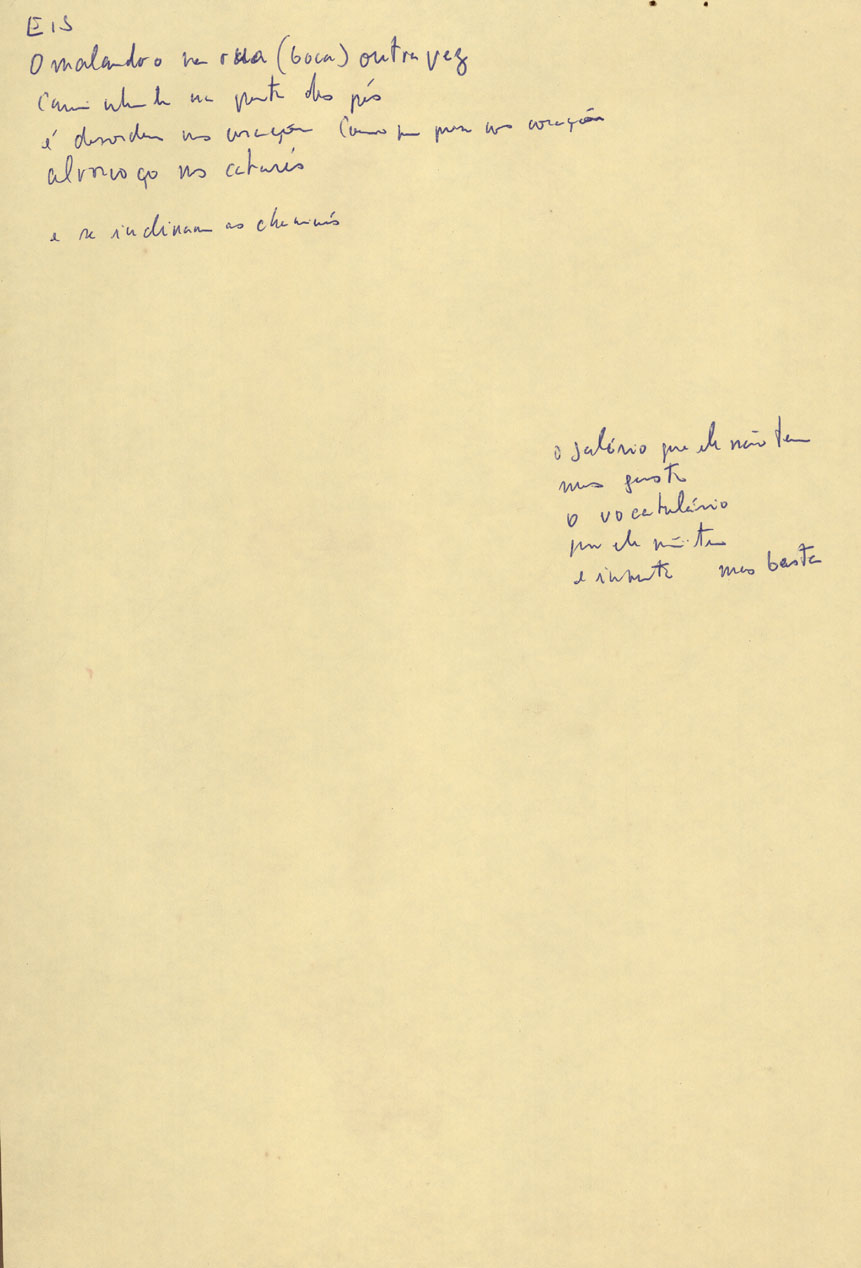 EIS
O malandro na rua (boca) outra vez
Caminhando na ponta dos pés
é desordem nos corações Como que pisa nos corações
alvoroço nos cabarés
e se inclinam as chaminés
o salário que ele não tem
mas gasta
o vocabulário
que ele não tem
e inventa mas basta